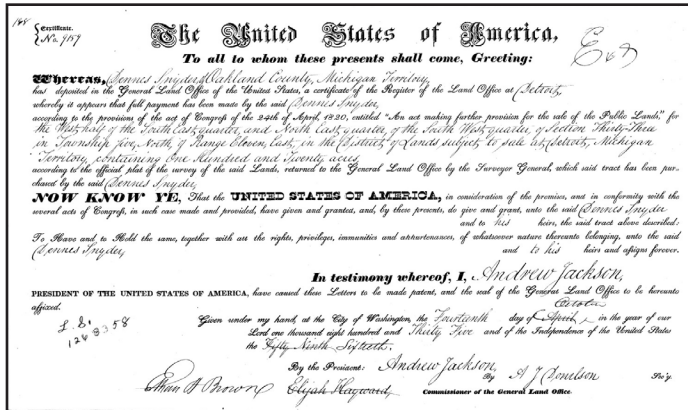 188
Certificate.
No. 9159
The United States of America,
To all to whom these presents shall come, Greeting:
Whereas, Dennes Snyder, Oakland County, Michigan Territory,
has deposited in the General Land Office of the United States, a certificate of the Register of the Land Office at Detroit,
whereby it appears that full payment has been made by the said Dennes Snyder,
according to the provisions of the act of Congress of the 24th of April, 1820, entitled "An act making further provision for the sale of the Public Lands," for
the West half of the South East quarter, and North East quarter, of the South West quarter, of Section Thirty-Three
in Township five, North, of Range Eleven, East, in the District of Lands subject to sale at Detroit, Michigan
Territory, containing One Hundred and Twenty acres,
according to the official plat of the survey of the said Lands, returned to the General Land Office by the Surveyor General, which said tract has been pur-
chased by the said Dennes Snyder,
NOW KNOW YE, That the UNITED STATES OF AMERICA, in consideration of the premises, and in conformity with the
several acts of Congress, in such case made and provided, have given and granted, and, by these presents, do give and grant, unto the said Dennes Snyder
and to his heirs, the said tract above described:
To Have and to Hold the same, together with all the rights, privileges, immunities and appurtenances, of whatsoever nature thereunto belonging, unto the said
Dennes Snyder, and to his heirs and assigns forever.
In testimony whereof, I, Andrew Jackson,
PRESIDENT OF THE UNITED STATES OF AMERICA, have caused these Letters to be made patent, and the seal of the General Land Office to be hereunto
affixed. October
L.S. Given under my hand, at the City of Washington, the Fourteenth day of April, in the year of our
1268358 Lord one thousand eight hundred and Thirty Five and of the Independence of the United States
the Fifty Ninth Sixtieth.
By the President: Andrew Jackson,
By A J Donelson Sec'y.
Ethan A Brown Elijah Hayward, Commissioner of the General Land Office.